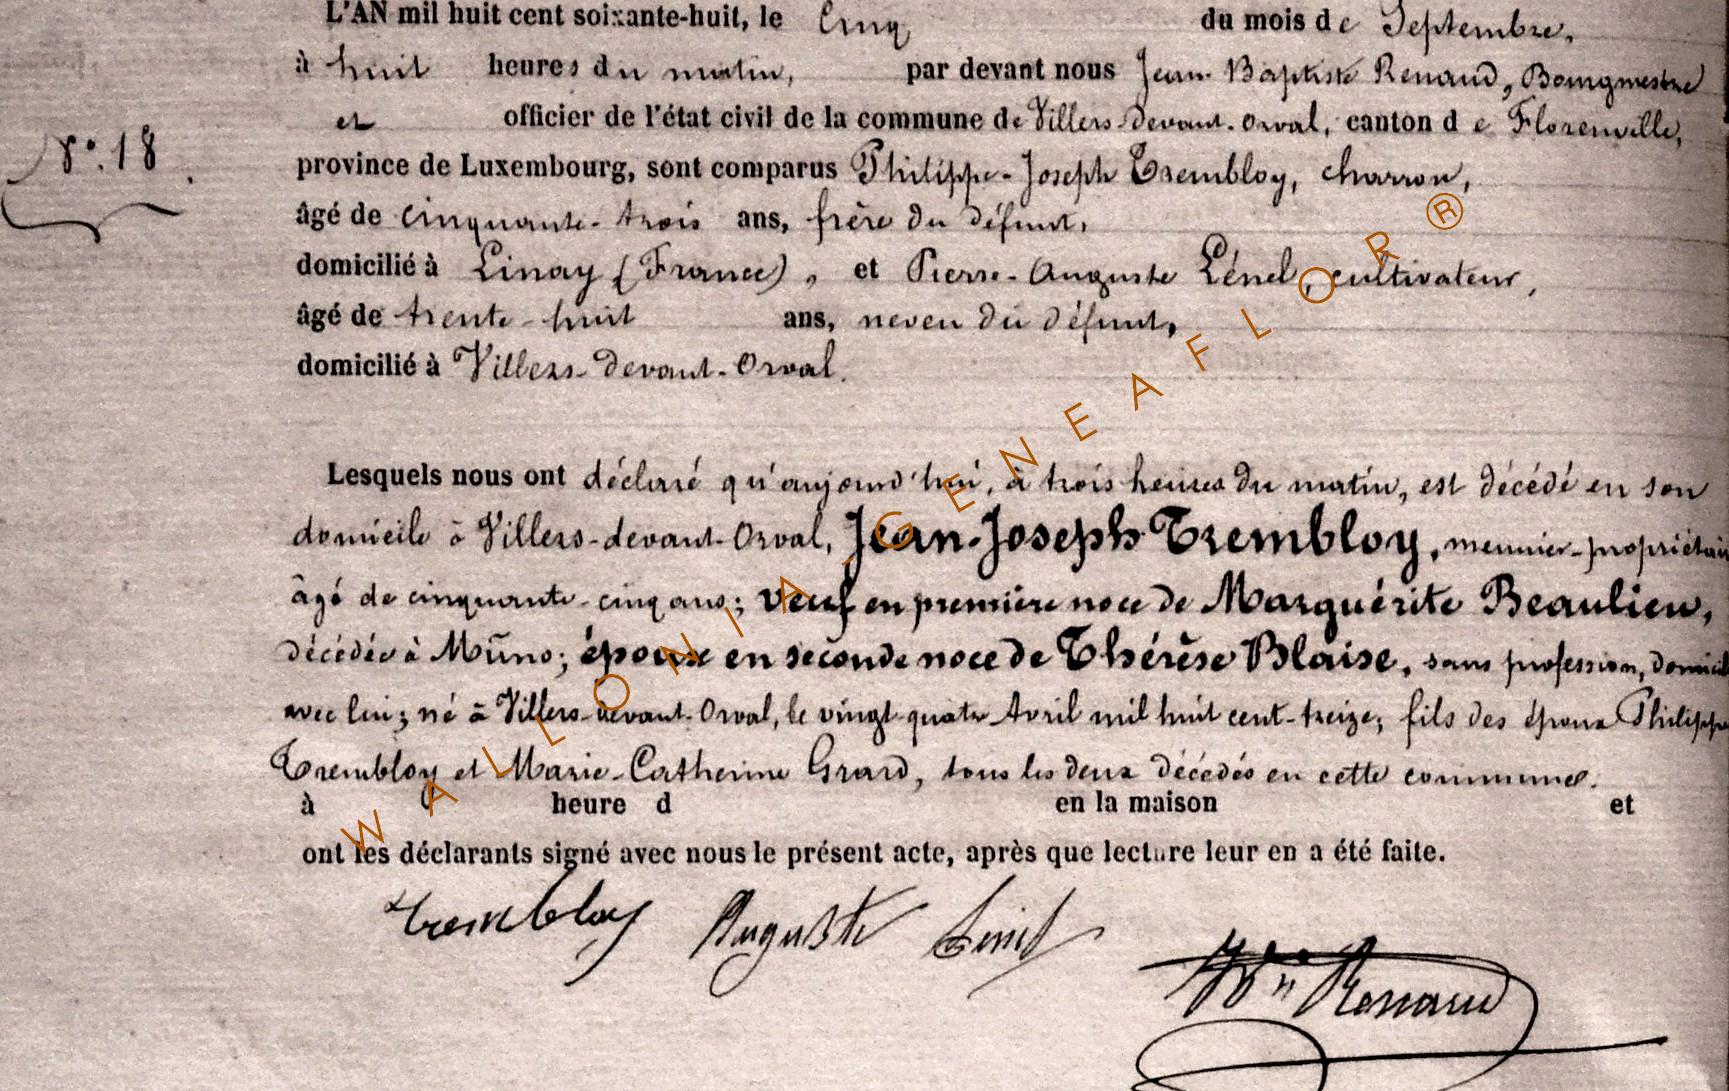 L'AN mil huit cent soixante-huit, le Cinq du mois de Septembre,
à huit heures du matin, par devant nous Jean-Baptiste Renaud, Bourgmestre
et officier de l'état civil de la commune de Villers-devant-Orval, canton de Florenville,
N°. 18
province de Luxembourg, sont comparus Philippe-Joseph Trembloy, charron,
âgé de cinquante-trois ans, frère du défunt,
domicilié à Linay (France), et Pierre-Auguste Lénel, cultivateur,
âgé de trente-huit ans, neveu du défunt,
domicilié à Villers-devant-Orval.
Lesquels nous ont déclaré qu'aujourd'hui, à trois heures du matin, est décédé en son
domicile à Villers-devant-Orval, Jean-Joseph Trembloy, meunier-propriétair
âgé de cinquante-cinq ans; veuf en première noce de Marguérite Beaulieu,
décédée à Muno; époux en seconde noce de Thérèse Blaise, sans profession, domicil
avec lui; né à Villers-devant-Orval, le vingt-quatre Avril mil huit cent-treize; fils des époux Philippe
Trembloy et Marie-Catherine Grard, tous les deux décédés en cette commune.
à heure d en la maison et
ont les déclarants signé avec nous le présent acte, après que lecture leur en a été faite.
Trembloy Auguste Lénel
Renaud
WALLONIA-GENEAFLOR®